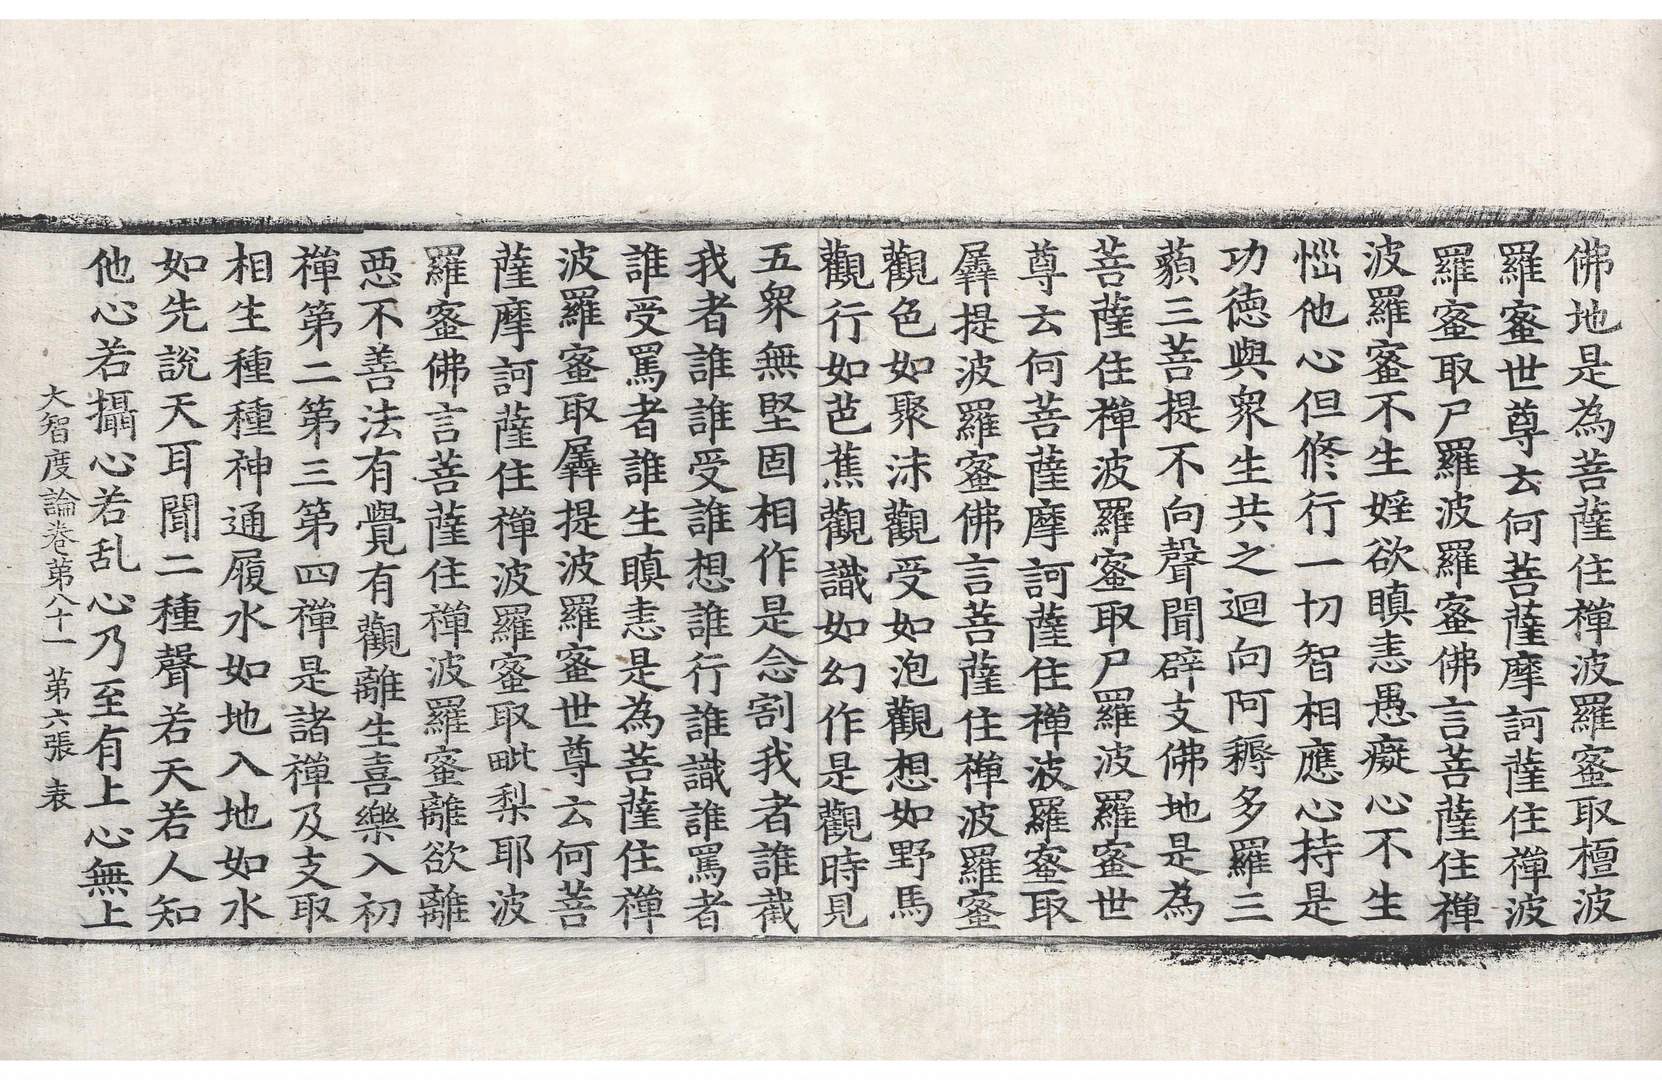 佛地是為菩薩住禪波羅蜜取檀波
羅蜜世尊云何菩薩摩訶薩住禪波
羅蜜取尸羅波羅蜜佛言菩薩住禪
波羅蜜不生婬欲瞋恚愚癡心不生
惱他心但修行一切智相應心持是
功德與衆生共之迴向阿耨多羅三
藐三菩提不向聲聞辟支佛地是為
菩薩住禪波羅蜜取尸羅波羅蜜世
尊云何菩薩摩訶薩住禪波羅蜜取
羼提波羅蜜佛言菩薩住禪波羅蜜
觀色如聚沫觀受如泡觀想如野馬
觀行如芭蕉觀識如幻作是觀時見
五衆無堅固相作是念割我者誰截
我者誰誰受誰想誰行誰識誰罵者
誰受罵者誰生瞋恚是為菩薩住禪
波羅蜜取羼提波羅蜜世尊云何菩
薩摩訶薩住禪波羅蜜取毗梨耶波
羅蜜佛言菩薩住禪波羅蜜離欲離
惡不善法有覺有觀離生喜樂入初
禪第二第三第四禪是諸禪及支取
相生種種神通履水如地入地如水
如先說天耳聞二種聲若天若人知
他心若攝心若乱心乃至有上心無上
大智度論卷第八十一 第六張 表